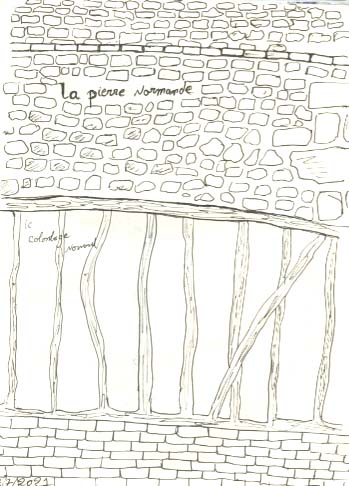 la pierre Normande
le
Colombage
Normand
2/2021